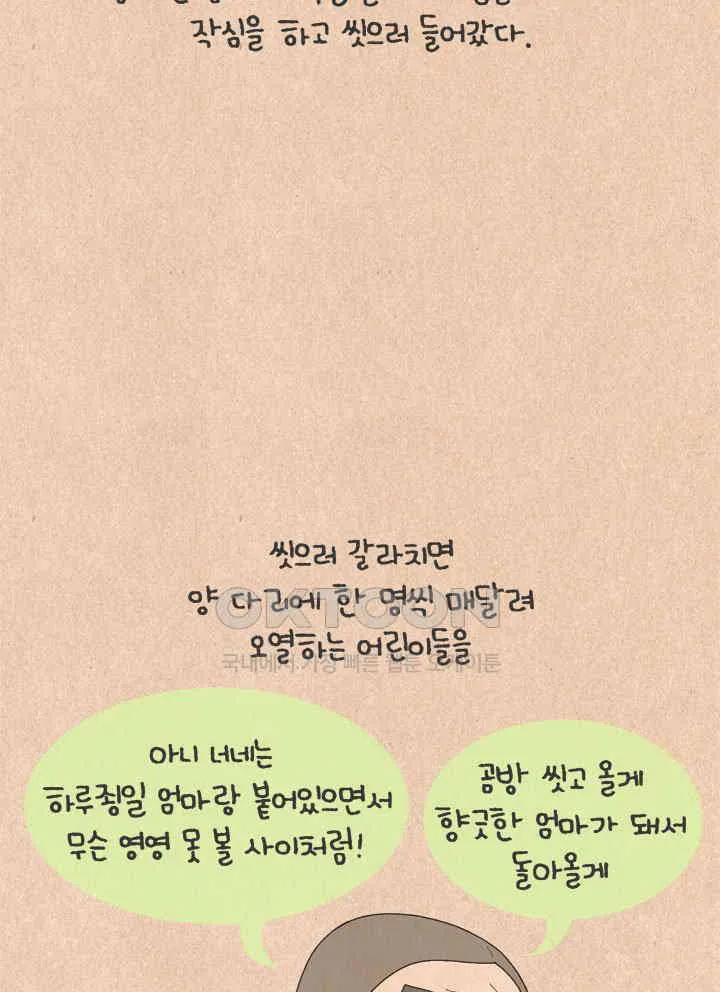 작심을 하고 씻으러 들어갔다.
씻으러 갈라치면
양 다리에 한 명씩 매달려
OKTOON
오열하는 어린이들을
국내에서 가장 빠른 웹툰 오케이툰
아니 너네는
하루죙일 엄마랑 붙어있으면서
무슨 영영 못 볼 사이처럼!
곰방 씻고 올게
향긋한 엄마가 돼서
돌아올게